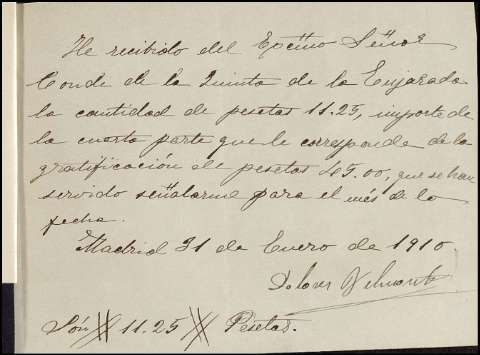 He recibido del Excmo Señor
Conde de la Quinta de la Enjarada
la cantidad de pesetas 11.25, importe de
la cuarta parte que le corresponde de la
gratificación de pesetas 45.00, que se han
servido señalarme para el més de la
fecha.
Madrid 31 de Enero de 1910
Dolores
Són # 11.25 # Pesetas.